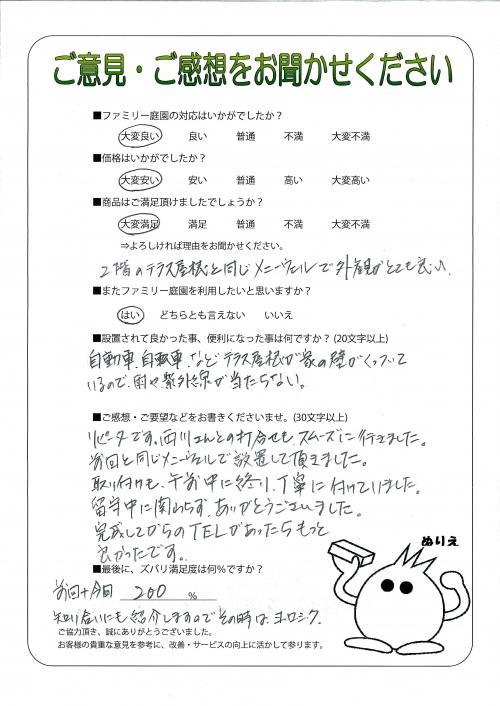 ご意見・ご感想をお聞かせください
■ファミリー庭園の対応はいかがでしたか？
大変良い 良い 普通 不満 大変不満
■価格はいかがでしたか？
大変安い 安い 普通 高い 大変高い
■商品はご満足頂けましたでしょうか？
大変満足 満足 普通 不満 大変不満
⇒よろしければ理由をお聞かせください。
2階のテラス屋根と同じメニーウェルで外観がとても良い。
■またファミリー庭園を利用したいと思いますか？
はい どちらとも言えない いいえ
■設置されて良かった事、便利になった事は何ですか？(20文字以上)
自動車、自転車、などテラス屋根が家の壁がくっついて
いるので、雨や紫外線が当たらない。
■ご感想・ご要望などをお書きくださいませ。(30文字以上)
リピータです。西川さんとの打合せも、スムーズに行きました。
前回と同じメニーウェルで設置して頂きました。
取り付けも、午前中に終り、丁寧に付けていました。
留守中に関わらず、ありがとうございました。
完成してからのTELがあったらもっと
良かったです。
■最後に、ズバリ満足度は何％ですか？
前回＋今回 200 %
知り合いにも紹介しますのでその時は、ヨロシク。
ご協力頂き、誠にありがとうございました。
お客様の貴重な意見を参考に、改善・サービスの向上に活かして参ります。
ぬりえ